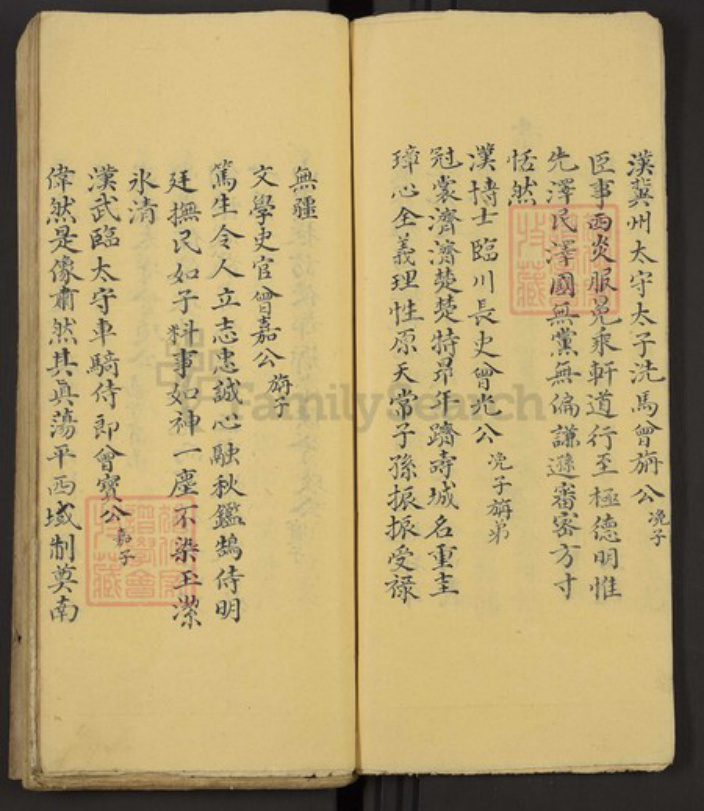 漢冀州太守太子洗馬曾旃公 凂子
臣事西炎服冕乘軒道行至極德明惟
先澤民澤國無黨無偏謙遜審密方寸
恬然
漢博士臨川長史曾光公 凂子旃弟
冠裳濟濟楚楚特昻年躋壽城名重圭
璋心全義理性原天常子孫振振受祿
無疆
文學史官曾嘉公 旃子
篤生令人立志忠誠心融秋鑑鵠侍明
廷撫民如子料事如神一塵不染玉潔
氷清
漢武臨太守車騎侍郎曾寶公 嘉子
偉然是像肅然其眞蕩平西域制奠南
FamilySearch